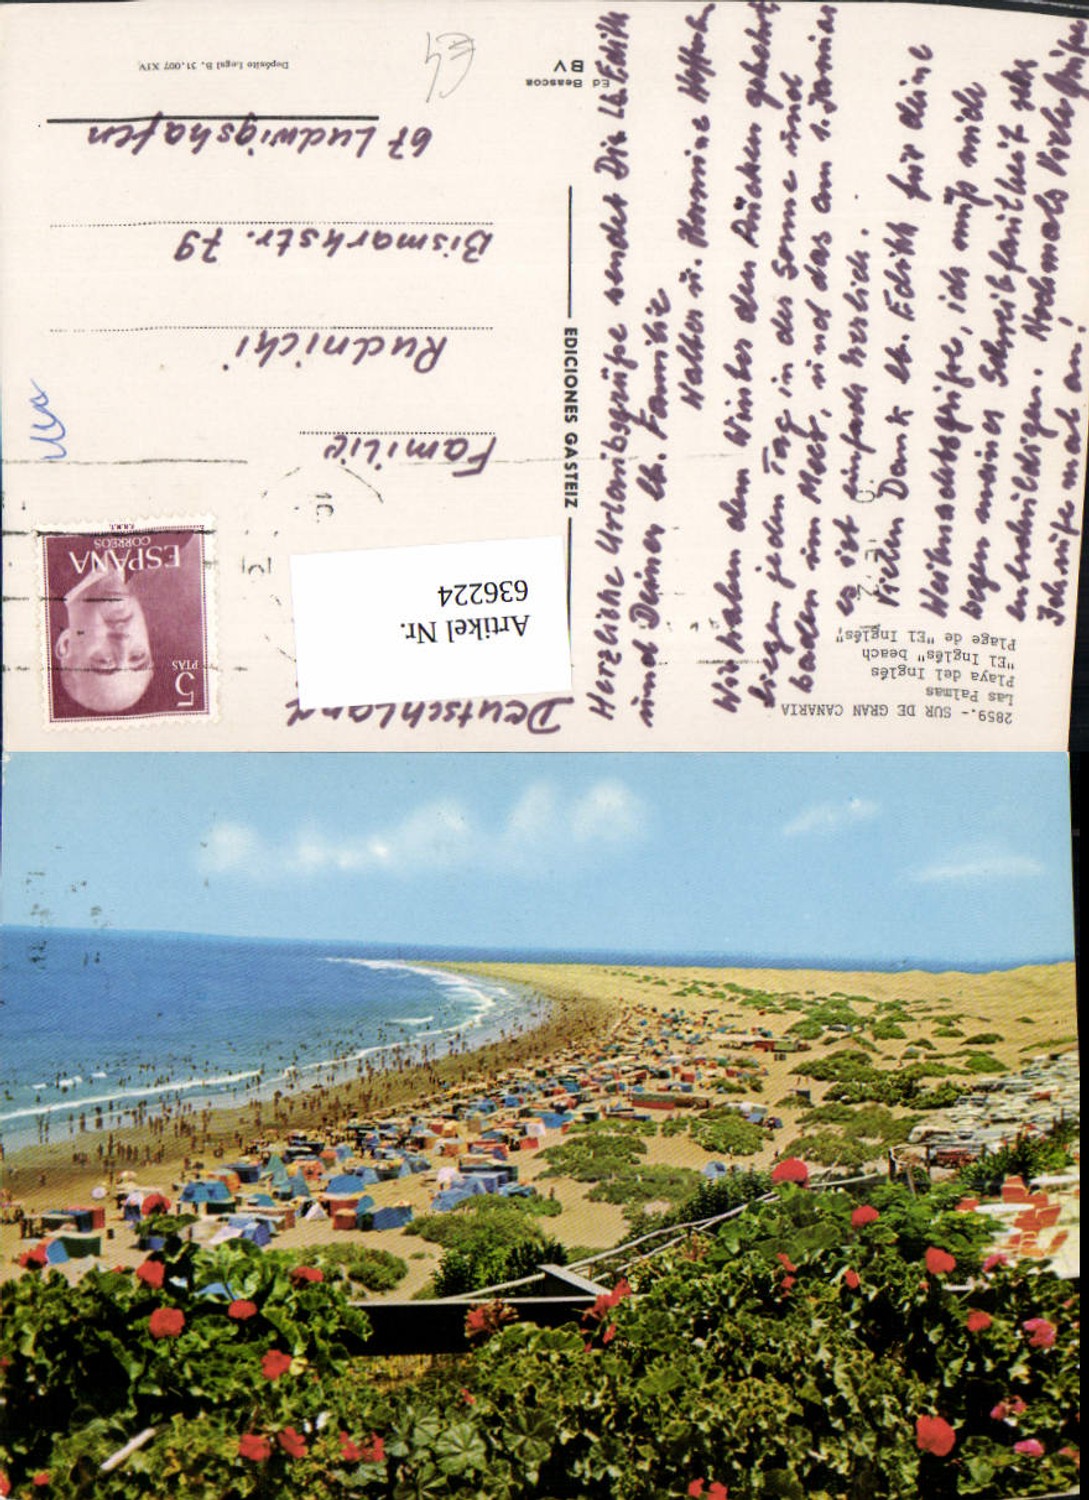 2859.- SUR DE GRAN CANARIA
Las Palmas
Playa del Inglés
"El Inglés" beach
Plage de "El Inglés"
Herzliche Urlaubsgrüße sendet Dir lb. Edith
und Deiner lb. Familie
Walter u. Hermine
Wir haben dem Winter den Rücken gekehrt
liegen jeden Tag in der Sonne und
baden im Meer, und das am 1. Januar
es ist einfach herlich.
Vielen Dank lb. Edith für deine
Weihnachtsgrüße, ich muß mich
wegen meiner Schreibfaulheit sehr
entschuldigen. Nochmals Viele Grüße
Ich rufe mal an!
EDICIONES GASTEIZ
Ed Beascoa
BV
Depósito Legal B. 31.007 XIV
5
PTAS
ESPAÑA
CORREOS
F.N.M.T.
Familie
Rudnicki
Bismarkstr. 79
67 Ludwigshafen
Deutschland
Artikel Nr.
636224